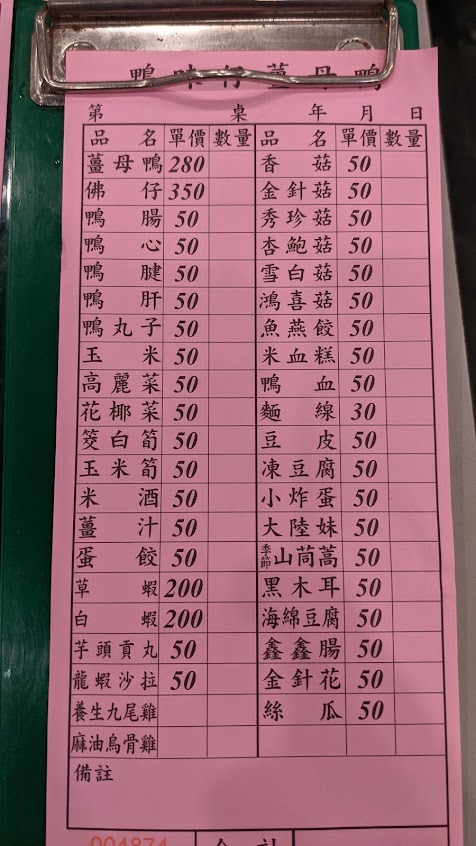 鴨味仔薑母鴨
第 桌 年 月 日
品名 單價 數量 品名 單價 數量
薑母鴨 280 香菇 50
佛仔 350 金針菇 50
鴨腸 50 秀珍菇 50
鴨心 50 杏鮑菇 50
鴨腱 50 雪白菇 50
鴨肝 50 鴻喜菇 50
鴨丸子 50 魚燕餃 50
玉米 50 米血糕 50
高麗菜 50 鴨血 50
花椰菜 50 麵線 30
筊白筍 50 豆皮 50
玉米筍 50 凍豆腐 50
米酒 50 小炸蛋 50
薑汁 50 大陸妹 50
蛋餃 50 季節山茼蒿 50
草蝦 200 黑木耳 50
白蝦 200 海綿豆腐 50
芋頭貢丸 50 鑫鑫腸 50
龍蝦沙拉 50 金針花 50
養生九尾雞 絲瓜 50
麻油烏骨雞
備註
004874 合計